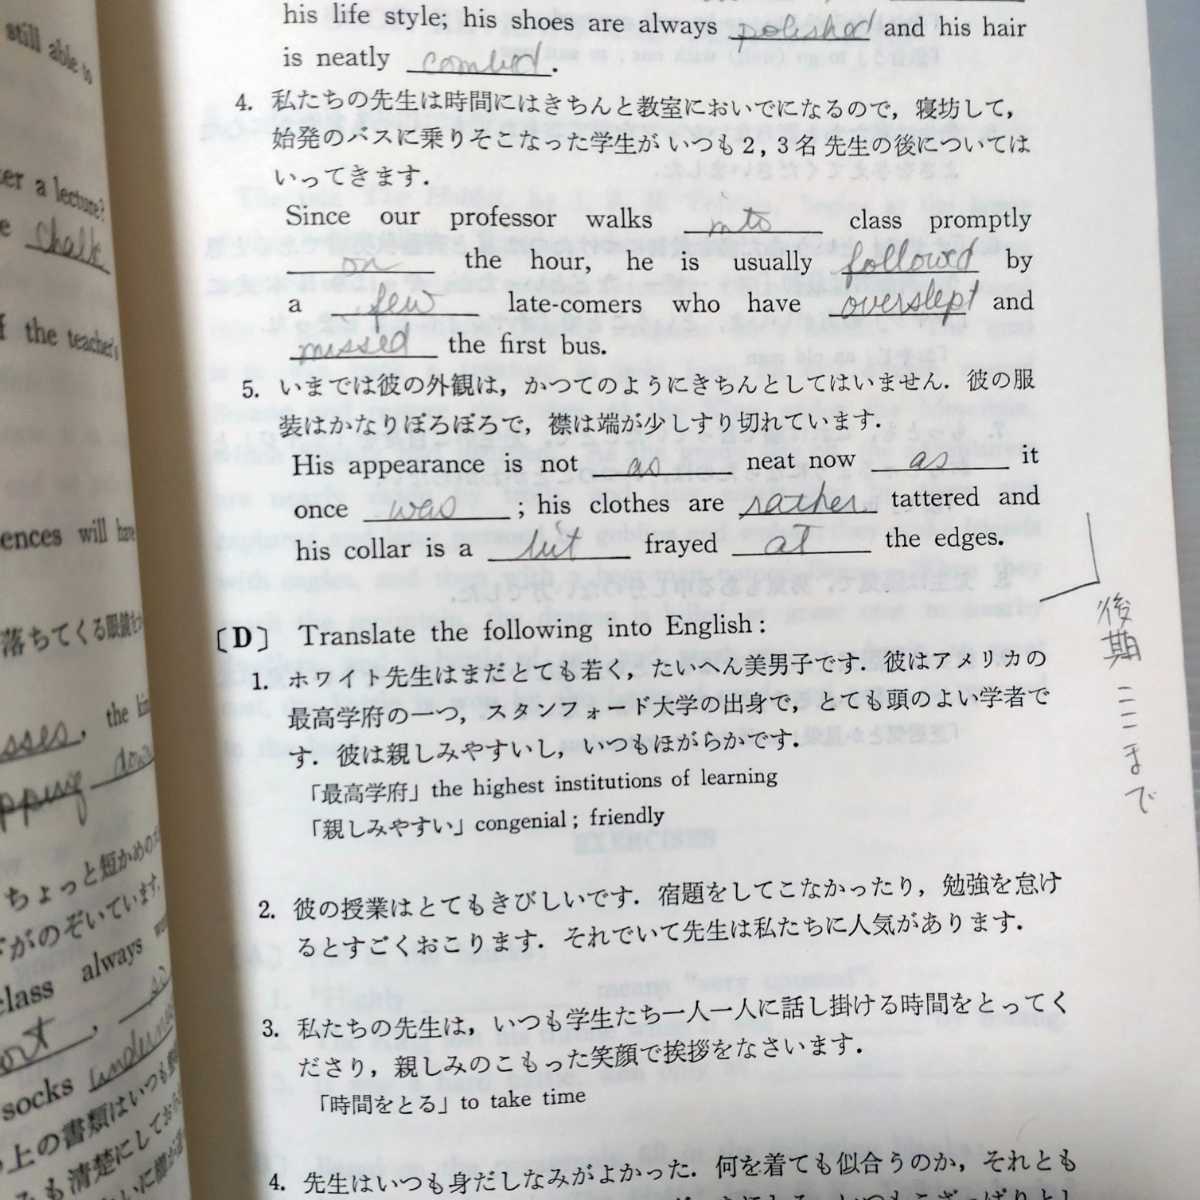 still able to
after a lecture?
chalk
the teacher's
ences will have
落ちてくる眼鏡を
sses, the
pping down
ちょっと短かめの
がのぞいています.
class always
socks
上の書類はいつも
も清楚にして
his life style; his shoes are always polished and his hair
is neatly combed.
4. 私たちの先生は時間にはきちんと教室においでになるので，寝坊して，
始発のバスに乗りそこなった学生が いつも2，3名 先生の後については
いってきます．
Since our professor walks into class promptly
on the hour, he is usually followed by
a few late-comers who have overslept and
missed the first bus.
5. いまでは彼の外観は，かつてのようにきちんとしてはいません．彼の服
装はかなりぼろぼろで，襟は端が少しすり切れています．
His appearance is not as neat now as it
once was ; his clothes are rather tattered and
his collar is a bit frayed at the edges.
〔D〕 Translate the following into English :
1. ホワイト先生はまだとても若く，たいへん美男子です．彼はアメリカの
最高学府の一つ，スタンフォード大学の出身で，とても頭のよい学者で
す．彼は親しみやすいし，いつもほがらかです．
「最高学府」the highest institutions of learning
「親しみやすい」congenial ; friendly
2. 彼の授業はとてもきびしいです．宿題をしてこなかったり，勉強を怠け
るとすごくおこります．それでいて先生は私たちに人気があります．
3. 私たちの先生は，いつも学生たち一人一人に話し掛ける時間をとってく
ださり，親しみのこもった笑顔で挨拶をなさいます．
「時間をとる」to take time
4. 先生はいつも身だしなみがよかった．何を着ても似合うのか，それとも
後期ここまで